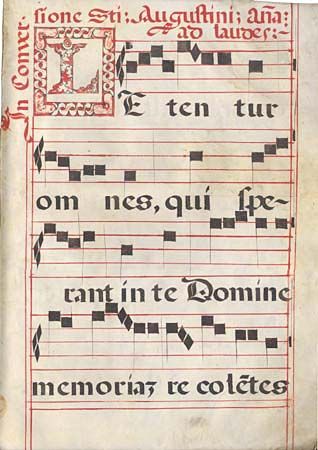 In Conver-
sione Sti: Augustini; Aña:
ad laudes:
LE ten tur
om nes, qui spe-
rant in te Domine
memoriaʒ re colētes